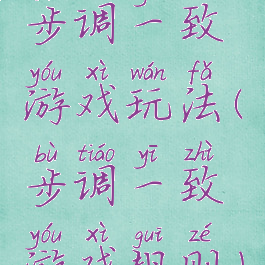 步调一致
yóu xì wán fǎ
游戏玩法(
bù tiáo yī zhì
步调一致
yóu xì guī zé
游戏规则)